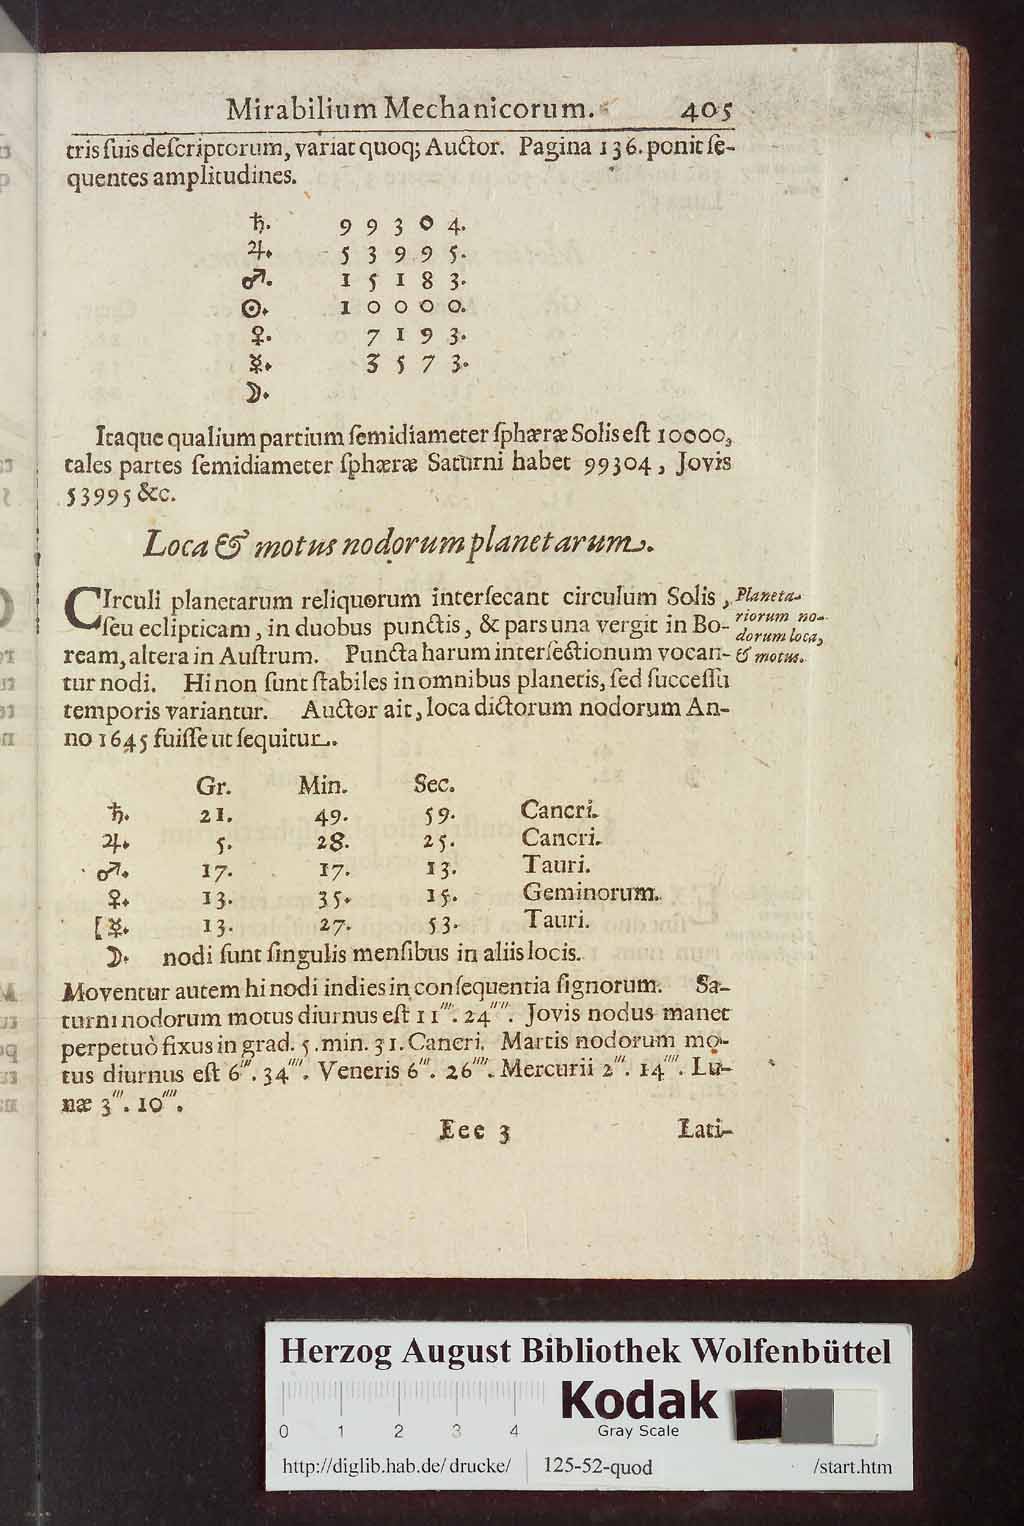 Mirabilium Mechanicorum. 405
tris ſuis deſcriptorum, variat quoq; Auctor. Pagina 136. ponit ſe-
quentes amplitudines.
♄. 9 9 3 0 4.
♃. 5 3 9 9 5.
♂. 1 5 1 8 3.
☉. 1 0 0 0 0.
♀. 7 1 9 3.
☿. 3 5 7 3.
☽.
Itaque qualium partium ſemidiameter ſphæræ Solis eſt 10000,
tales partes ſemidiameter ſphæræ Saturni habet 99304, Jovis
53995 &c.
Loca & motus nodorum planetarum.
CIrculi planetarum reliquorum interſecant circulum Solis,
ſeu eclipticam, in duobus punctis, & pars una vergit in Bo-
ream, altera in Auſtrum. Puncta harum interſectionum vocan-
tur nodi. Hi non ſunt ſtabiles in omnibus planetis, ſed ſucceſſu
temporis variantur. Auctor ait, loca dictorum nodorum An-
no 1645 fuiſſe ut ſequitur.
Planeta-
riorum no-
dorum loca,
& motus.
Gr. Min. Sec.
♄. 21. 49. 59. Cancri.
♃. 5. 28. 25. Cancri.
♂. 17. 17. 13. Tauri.
♀. 13. 35. 15. Geminorum.
[☿. 13. 27. 53. Tauri.
☽. nodi ſunt ſingulis menſibus in aliis locis.
Moventur autem hi nodi indies in conſequentia ſignorum. Sa-
turni nodorum motus diurnus eſt 11‴. 24⁗. Jovis nodus manet
perpetuò fixus in grad. 5. min. 31. Cancri. Martis nodorum mo-
tus diurnus eſt 6‴. 34⁗. Veneris 6‴. 26⁗. Mercurii 2‴. 14⁗. Lu-
næ 3‴. 10⁗.
Eee 3 Lati-
Herzog August Bibliothek Wolfenbüttel
Kodak
Gray Scale
0 1 2 3 4
http://diglib.hab.de/drucke/ 125-52-quod /start.htm